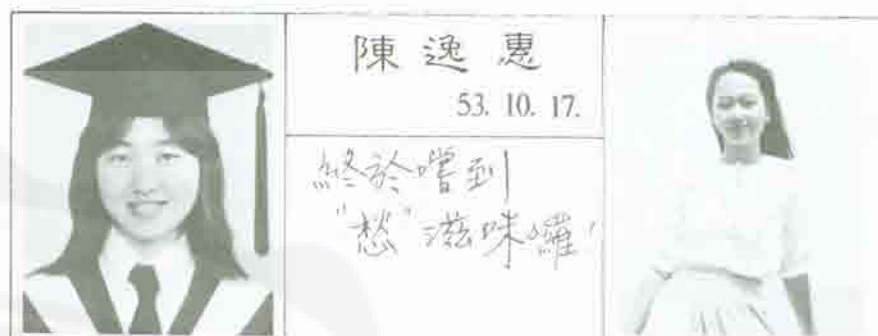 陳逸惠
53. 10. 17.
終於嚐到
"愁"滋味囉!